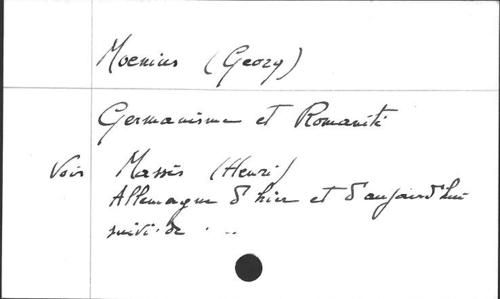 Moenius (Georg)
Germanisme et Romanité
Voir Massis (Henri)
Allemagne d'hier et d'aujourd'hui
suivi de . ..